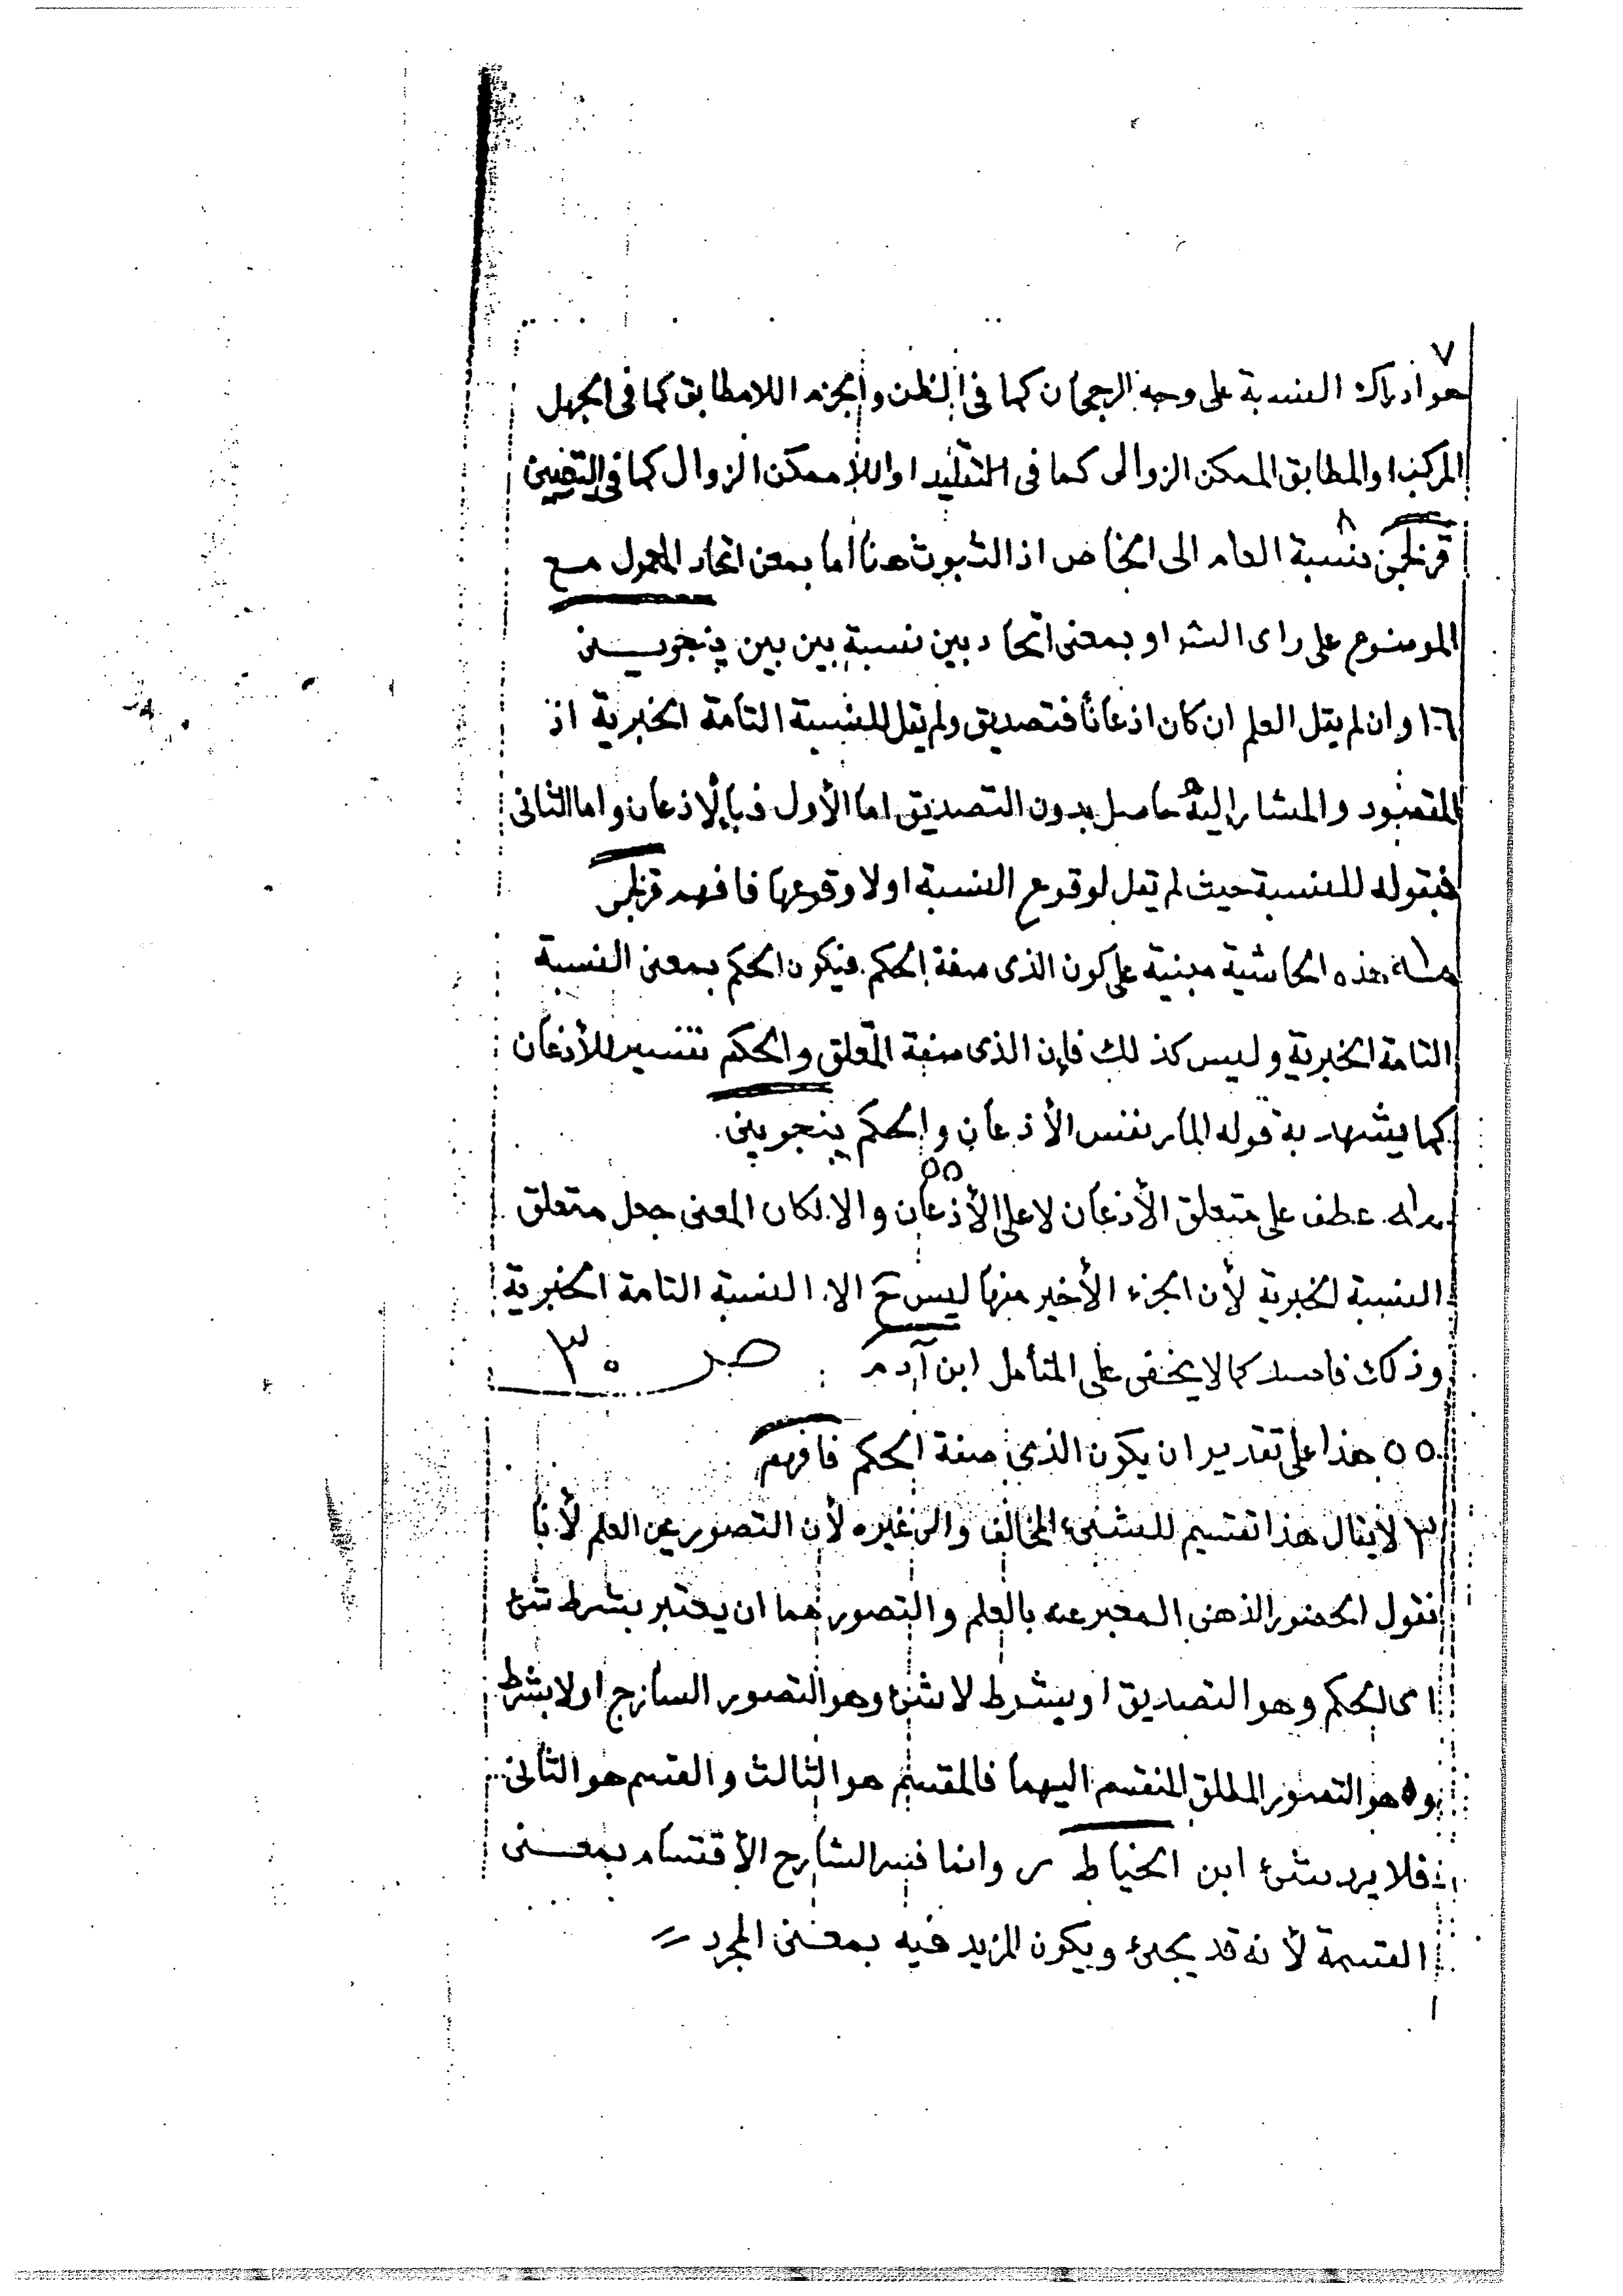 ٧
هو ادراك النسبة على وجه الرجحان كما فى الظن والجزم اللامطابق كما فى الجهل
المركب او المطابق الممكن الزوالى كما فى التقليد او اللاممكن الزوال كما فى اليقين
قزلجى نسبة العام الى الخاص اذ الثبوت هنا اما بمعن اتحاد المحمول مع
الموضوع على راى الشر او بمعنى اتحاد بين نسبة بين بين پنجوينى
١٠٦ وان لم يقل العلم ان كان اذعانا فتصديق ولم يقل للنسبة التامة الخبرية اذ
المقصود والمشار اليه حاصل بدون التصديق اما الأول فبالإذعان واما الثانى
فبقوله للنسبة حيث لم يقل لوقوع النسبة اولا وقوعها فافهم قزلجى
هذه الحاشية مبنية على كون الذى صفة الحكم فيكون الحكم بمعنى النسبة
التامة الخبرية وليس كذلك فإن الذى صفة المتعلق والحكم تفسير للأذعان
كما يشهد به قوله المار نفس الأذعان والحكم پنجوينى.
٥٥
عطف على متعلق الأذعان لا على الأذعان والا لكان المعنى جعل متعلق
النسبة الخبرية لأن الجزء الأخير منها ليس ح الا النسبة التامة الخبرية
وذلك فاسد كما لا يخفى على المتأمل ابن آدم صـ ٣٠
٥٥ هذا على تقدير ان يكون الذى صفة الحكم فافهم
٣ لايقال هذا تقسيم للشىء المخالف والى غيره لأن التصور عين العلم لأنا
نقول الحضور الذهنى المعبر عنه بالعلم والتصور هما ان يعتبر بشرط شئ
اى الحكم وهو التصديق او بشرط لا شئ وهو التصور الساذج او لا بشرط
وهو التصور المطلق المنقسم اليهما فالمقسم هو الثالث والقسم هو الثانى
فلا يرد شئ ابن الخياط وانما فسر الشارح الأقتسام بمعنى
القسمة لأنه قد يجئ ويكون المزيد فيه بمعنى المجرد =
١